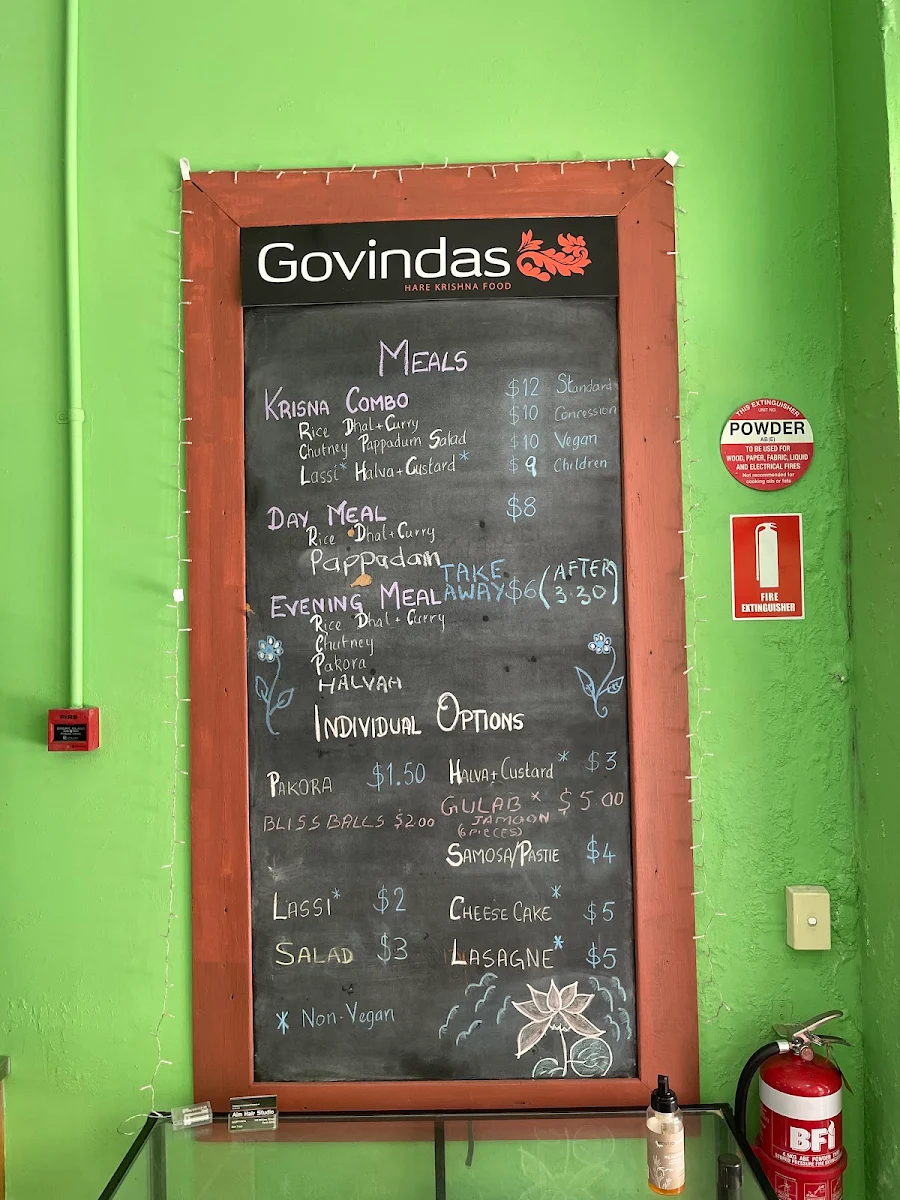 Govindas
HARE KRISHNA FOOD
MEALS
KRISNA COMBO $12 Standard
Rice Dhal+Curry $10 Concession
Chutney Pappadum Salad $10 Vegan
Lassi* Halva+Custard* $9 Children
DAY MEAL $8
Rice Dhal+Curry
Pappadam
TAKE AWAY $6 (AFTER 3:30)
EVENING MEAL
Rice Dhal + Curry
Chutney
Pakora
HALVAH
INDIVIDUAL OPTIONS
PAKORA $1.50 Halva+Custard* $3
BLISS BALLS $2.00 GULAB* $5.00
JAMOON
(6 PIECES)
SAMOSA/PASTIE $4
LASSI* $2 CHEESE CAKE* $5
SALAD $3 LASAGNE* $5
* Non-Vegan
THIS EXTINGUISHER
UNIT NO.
POWDER
AB(E)
TO BE USED FOR
WOOD, PAPER, FABRIC, LIQUID
AND ELECTRICAL FIRES
Not recommended for
cooking oils or fats
FIRE
EXTINGUISHER
FIRE
Aim Hair Studio
BFI